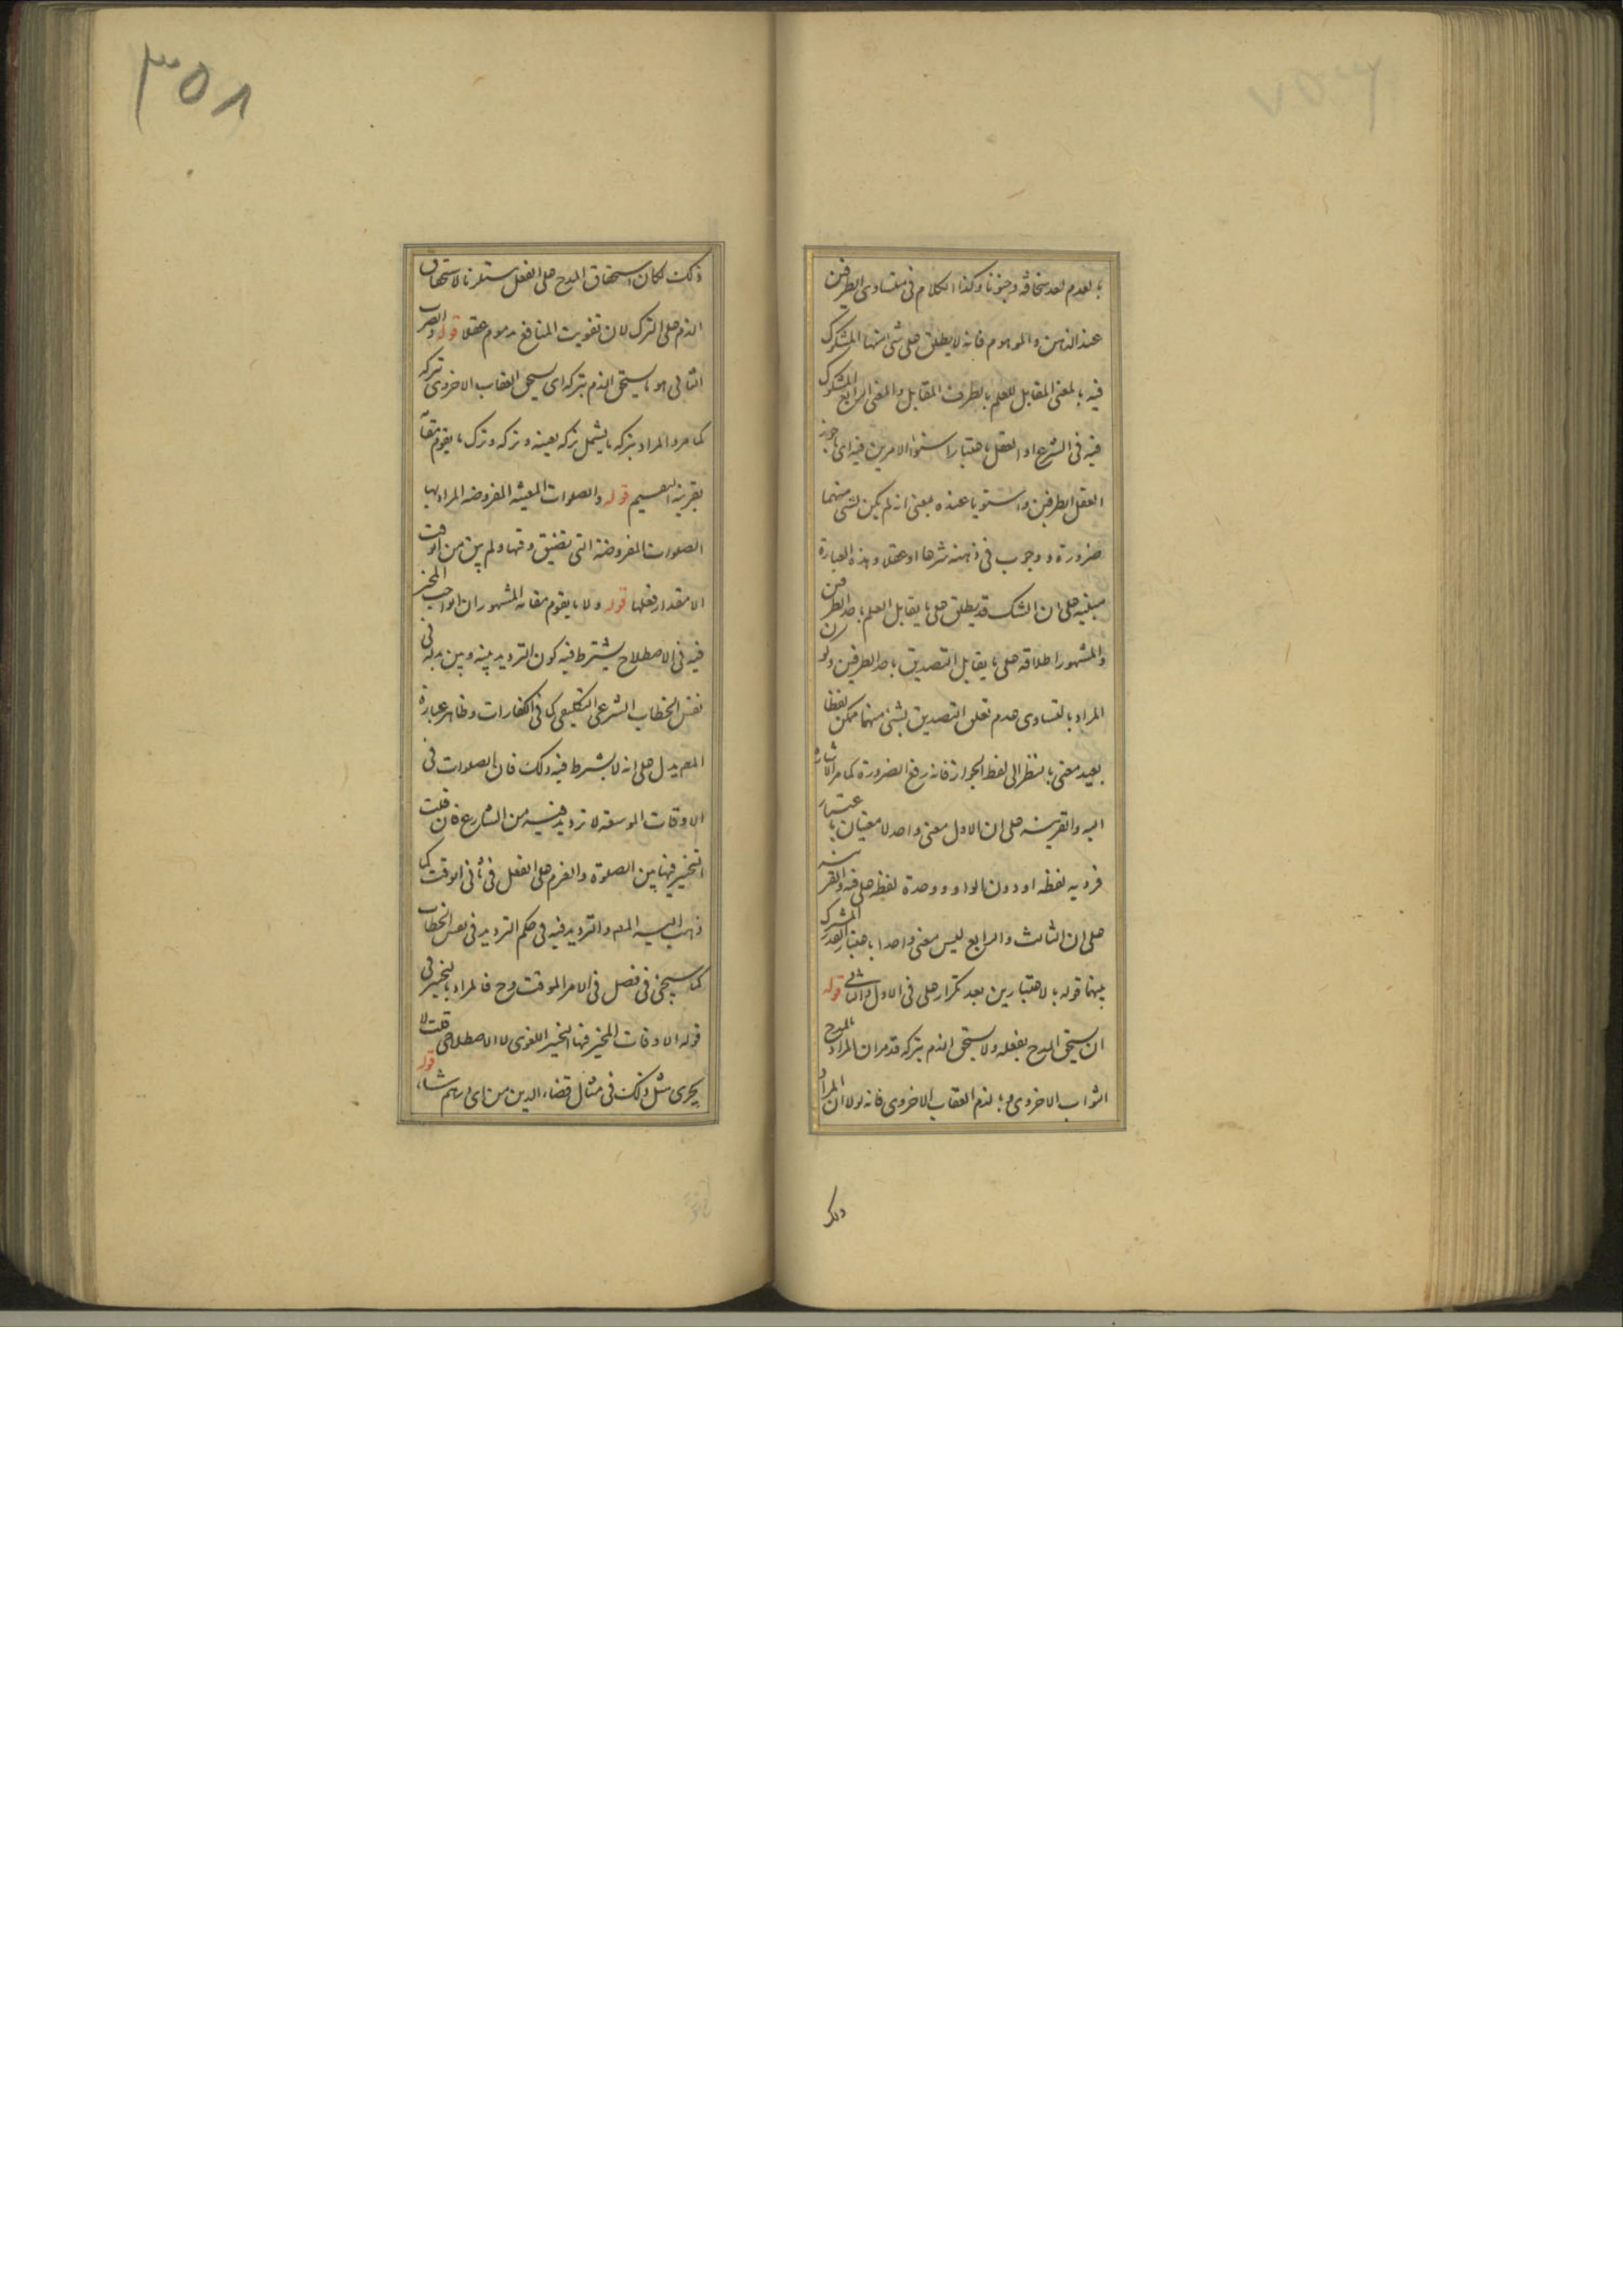 بالعدم لعد سخافة وجنونا وكذا الكلام فى متساوى الطرفين
عند الذهن والموهوم فانه لا يطلق على شئ منهما المشكوك
فيه بالمعنى المقابل للعلم بالطرف المقابل والمعنى الرابع المشكوك
فيه فى الشرع او العقل باعتبار استواء الامرين فيه اى ما جوز
العقل الطرفين واستويا عنده بمعنى انه لم يكن لشئ منهما
ضرورة ووجوب فى ذهنه شرعا او عقلا وهذه العبارة
مبنية على ان الشك قد يطلق على ما يقابل العلم باحد الطرفين
والمشهور اطلاقه على ما يقابل التصديق باحد الطرفين وكون
المراد بالتساوى عدم تعلق التصديق بشئ منهما ممكن لفظا
بعيد معنى بالنظر الى لفظ الجواز فانه رفع الضرورة كما مر الاشارة
اليه والقرينة على ان الاول معنى واحد لا معنيان باعتبار
فرديه لفظه او دون الواو ووحدة لفظه على فيه والقرينة
على ان الثالث والرابع ليس معنى واحدا باعتبار القدر المشترك
بينهما قوله بالاعتبارين بعد تكرار على فى الاول والثانى قوله
ان يستحق المدح بفعله ولا يستحق الذم بتركه قد مر ان المراد بالمدح
الثواب الاخروى وبالذم العقاب الاخروى فانه لولا ان المراد
ذلك
٣٥٨
ذلك لكان استحقاق المدح على الفعل مستلزما لاستحقاق
الذم على الترك لان تفويت المنافع مذموم عقلا قوله والضرب
الثانى هو ما يستحق الذم بتركه اى يستحق العقاب الاخروى بتركه
كما مر والمراد بتركه ما يشمل تركه بعينه وتركه وترك ما يقوم مقامه
بقرينة التقسيم قوله والصلوات المعينة المفروضة المراد بها
الصلوات المفروضة التى تضيق وقتها ولم يبق من الوقت
الا مقدار فعلها قوله ولا ما يقوم مقامه المشهور ان الواجب المخير
فيه فى الاصطلاح يشترط فيه كون الترديد بينه وبين بدله فى
نفس الخطاب الشرعى التكليفى كما فى الكفارات وظاهر عبارة
المصـ يدل على انه لا يشترط فيه ذلك فان الصلوات فى
الاوقات الموسعة لا ترديد فيه من الشارع فان قلت
التخيير فيها بين الصلوة والعزم على الفعل فى ثانى الوقت كما
ذهب اليه المصـ والترديد فيه فى حكم الترديد فى نفس الخطاب
كما سيجئ فى فصل فى الامر الموقت وح فالمراد بالتخيير فى
قوله الاوقات المخير فيها التخيير اللغوى لا الاصطلاحى قلت لا
يجرى مثل ذلك فى مثال قضاء الدين من اى درهم شاء قوله